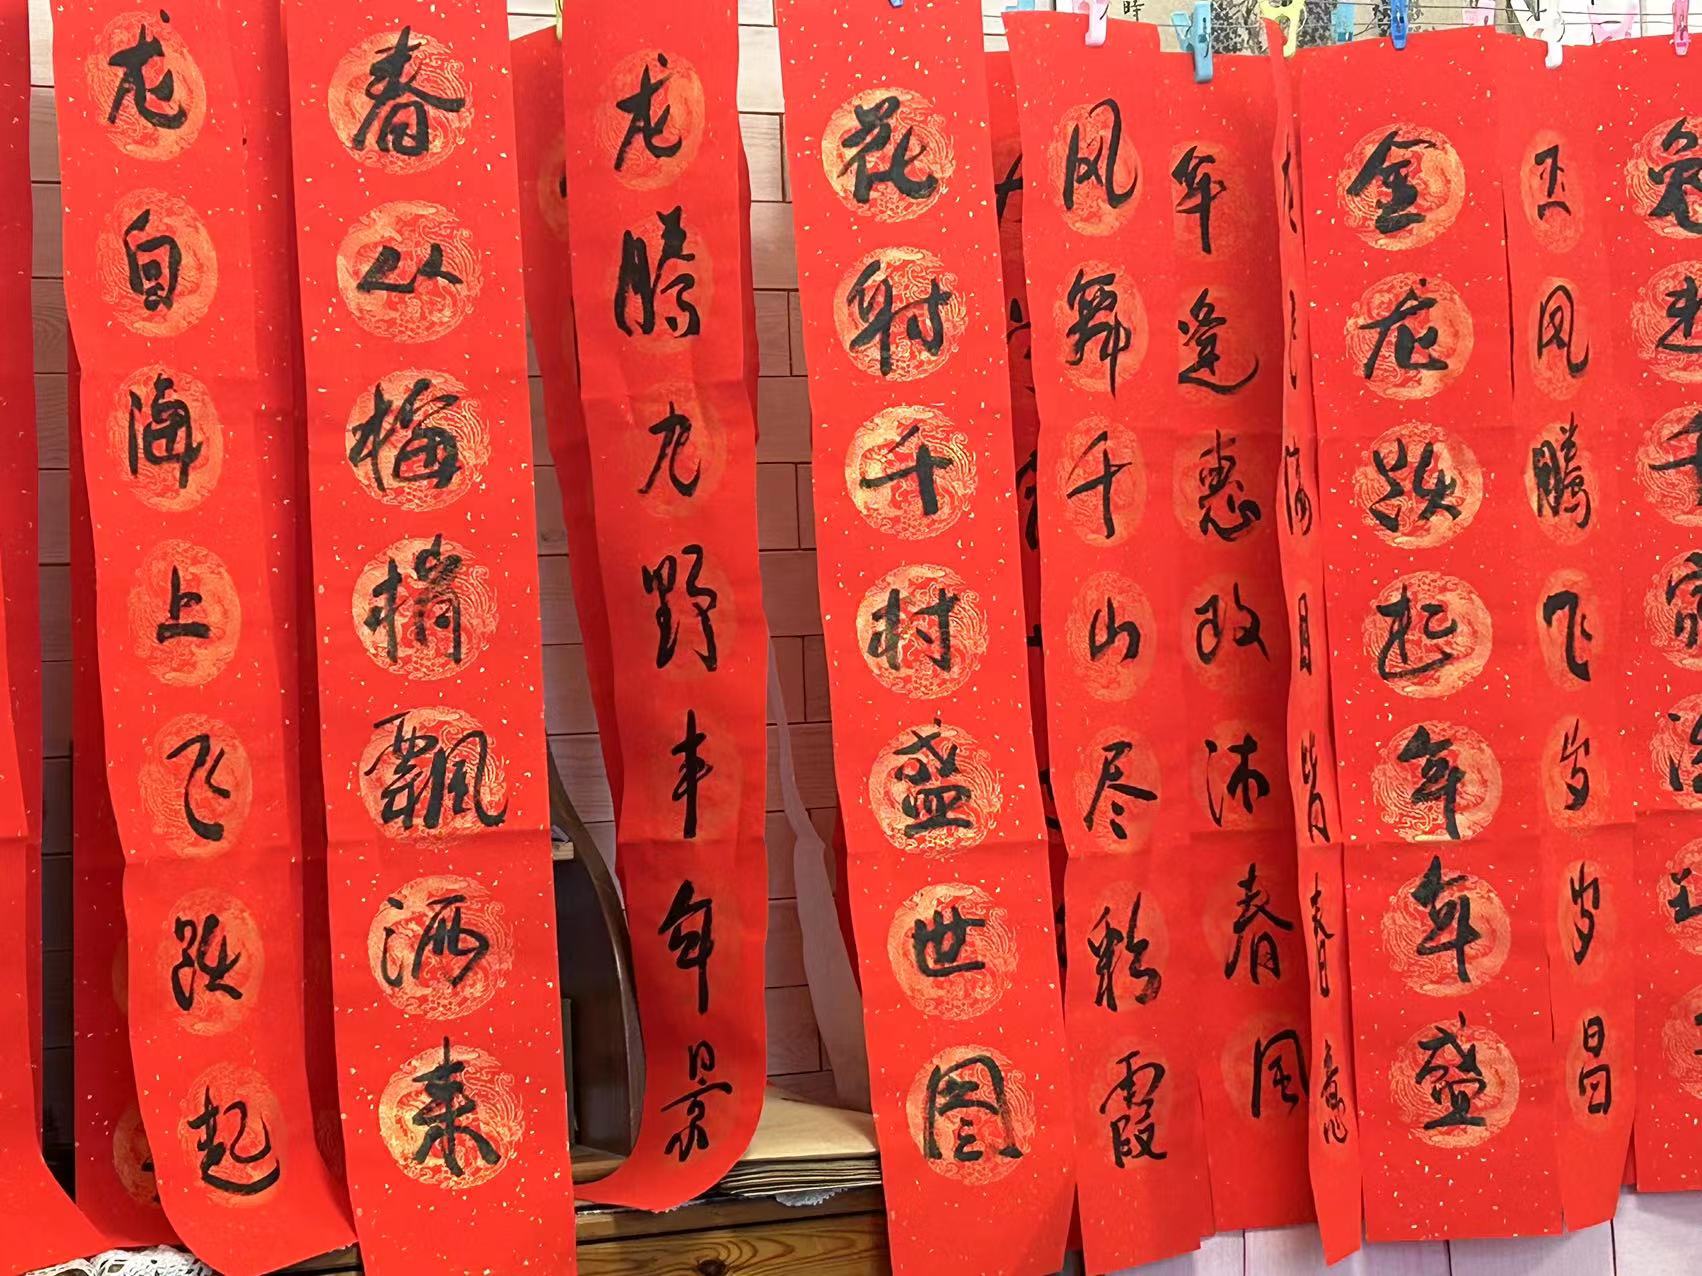 龙自海上飞跃起
春从梅梢飘洒来
龙腾九野丰年景
花射千村盛世图
凤舞千山尽彩霞
年逢惠政沐春风
满目皆春意
金龙跃起年年盛
玉凤腾飞岁岁昌